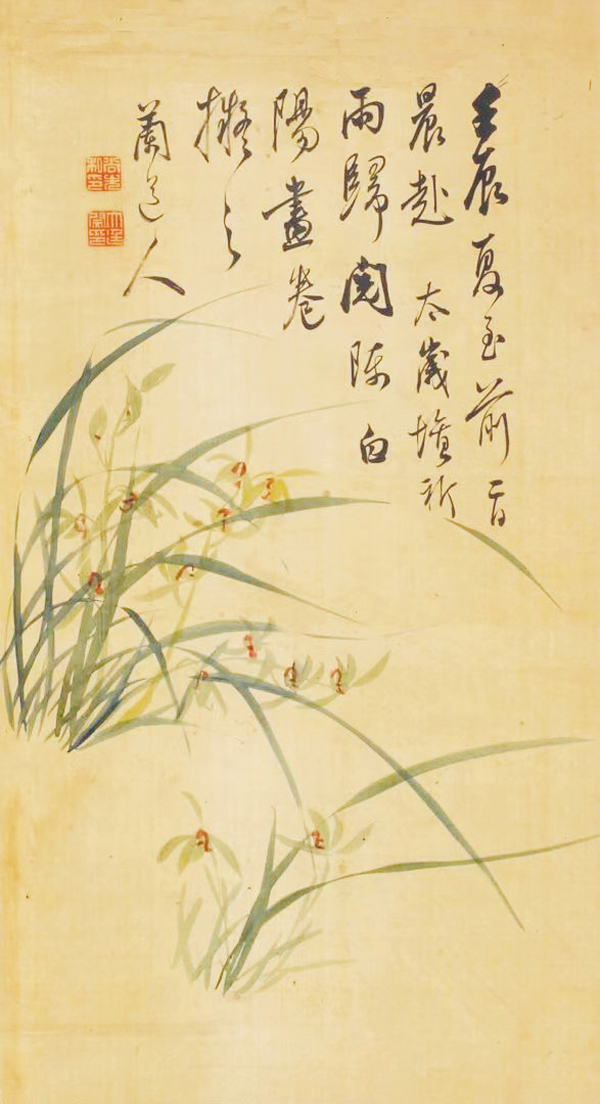 壬辰夏至前二日
晨赴 太歲壇祈
雨歸閱陳白
陽畫卷
擬之
蘭道人